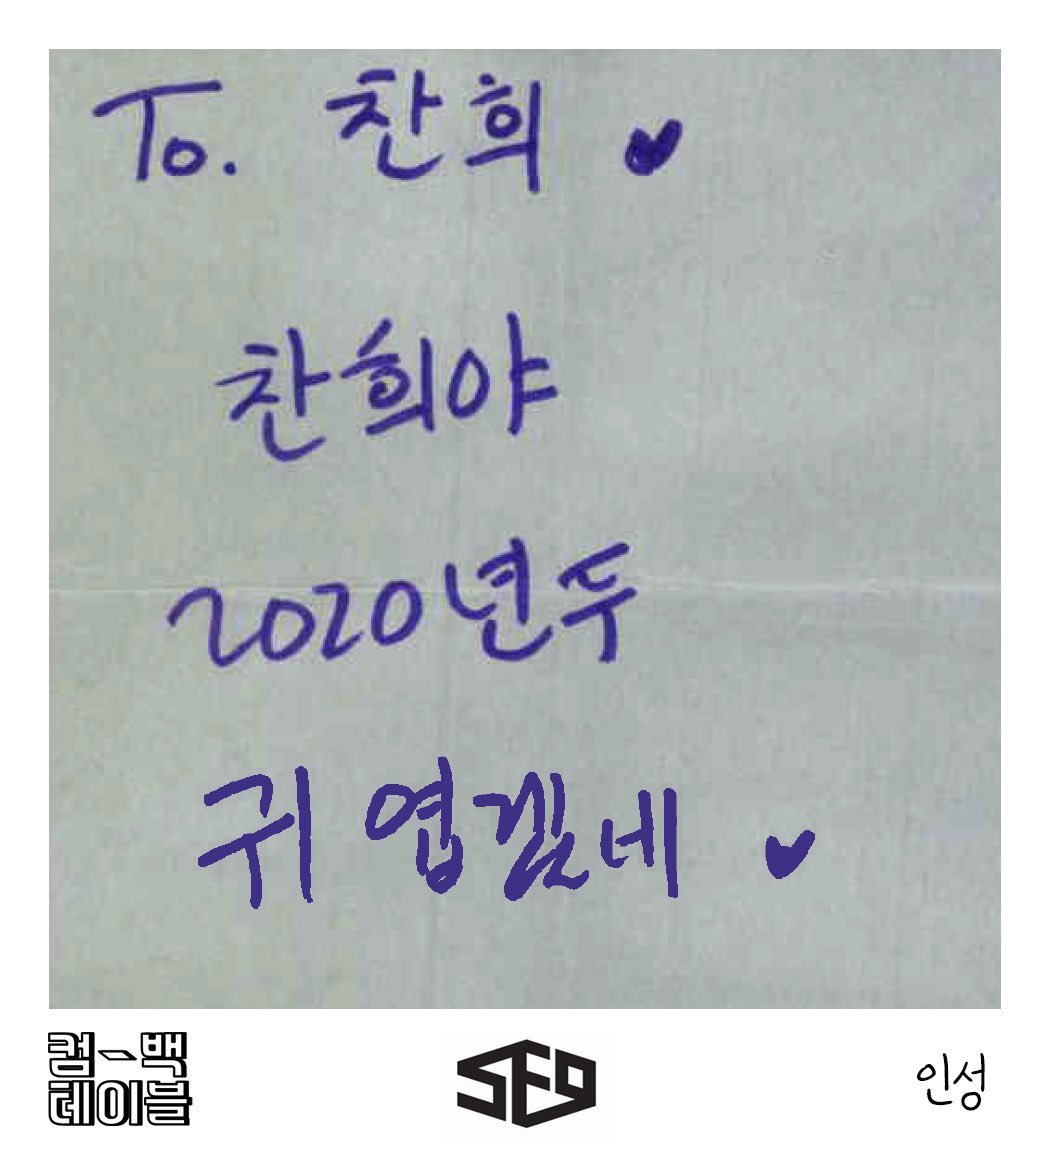 To. 찬희 ♥
찬희야
2020년두
귀엽겠네 ♥
컴-백
테이블
SF9
인성